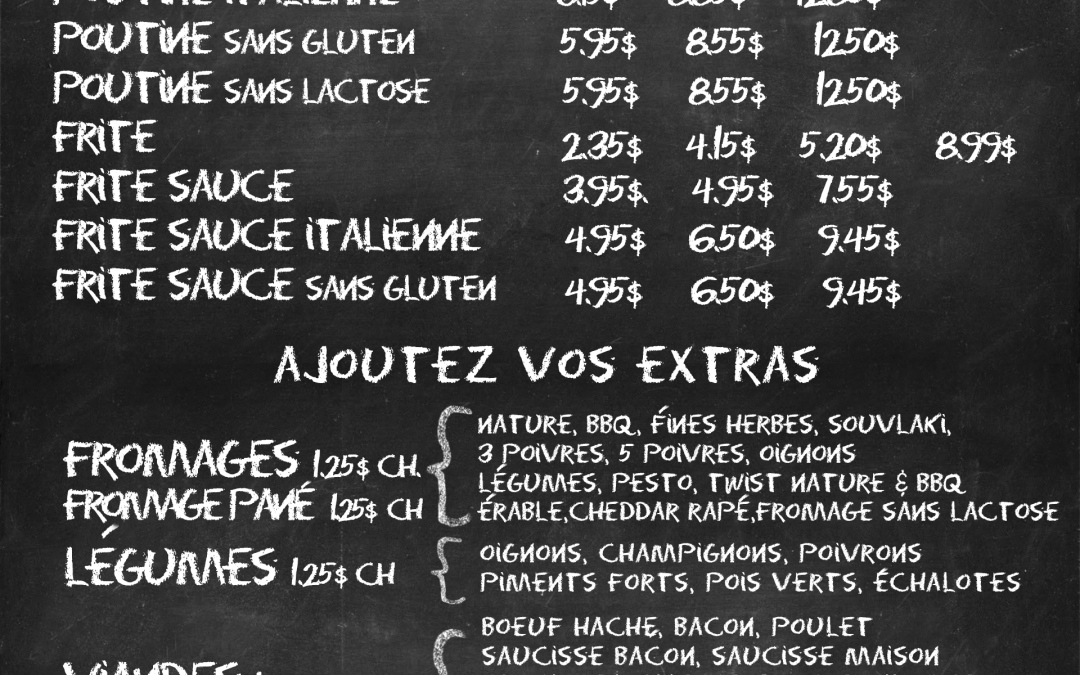 POUTINE ITALIENNE
POUTINE SANS GLUTEN 5.95$ 8.55$ 12.50$
POUTINE SANS LACTOSE 5.95$ 8.55$ 12.50$
FRITE 2.35$ 4.15$ 5.20$ 8.99$
FRITE SAUCE 3.95$ 4.95$ 7.55$
FRITE SAUCE ITALIENNE 4.95$ 6.50$ 9.45$
FRITE SAUCE SANS GLUTEN 4.95$ 6.50$ 9.45$
AJOUTEZ VOS EXTRAS
FROMAGES 1.25$ CH.
FROMAGE PANÉ 1.25$ CH
NATURE, BBQ, FINES HERBES, SOUVLAKI,
3 POIVRES, 5 POIVRES, OIGNONS
LÉGUMES, PESTO, TWIST NATURE & BBQ
ÉRABLE,CHEDDAR RAPÉ,FROMAGE SANS LACTOSE
LÉGUMES 1.25$ CH
OIGNONS, CHAMPIGNONS, POIVRONS
PIMENTS FORTS, POIS VERTS, ÉCHALOTES
VIANDES
BOEUF HACHE, BACON, POULET
SAUCISSE BACON, SAUCISSE MAISON